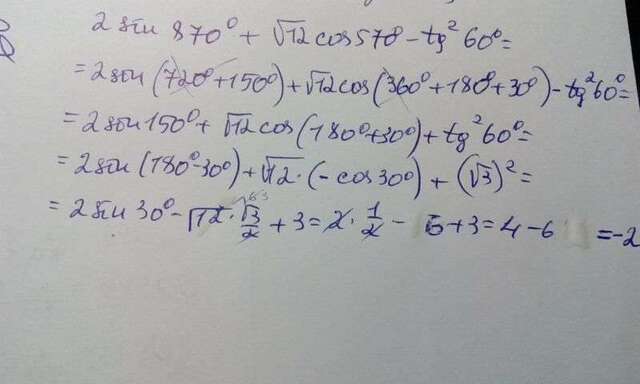 2 sin 870° + √12 cos 570° - tg² 60° =
= 2 sin (720° + 150°) + √12 cos (360° + 180° + 30°) - tg² 60° =
= 2 sin 150° + √12 cos (180° + 30°) + tg² 60° =
= 2 sin (180° - 30°) + √12 · (- cos 30°) + (√3)² =
= 2 sin 30° - √12 · √3/2 + 3 = 2 · 1/2 - 6 + 3 = 4 - 6 = -2